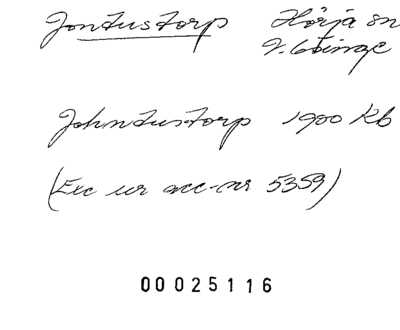 Jontustorp Hörja sn
V. Göinge
Johntustorp 1900 Kb
(Exc ur acc-nr 5359)
00025116